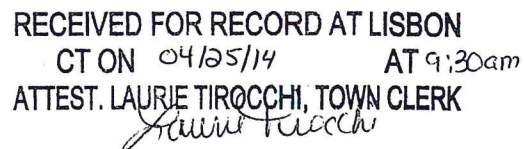 RECEIVED FOR RECORD AT LISBON
CT ON 04/25/14 AT 9:30am
ATTEST. LAURIE TIROCCHI, TOWN CLERK
Laurie Tirocchi